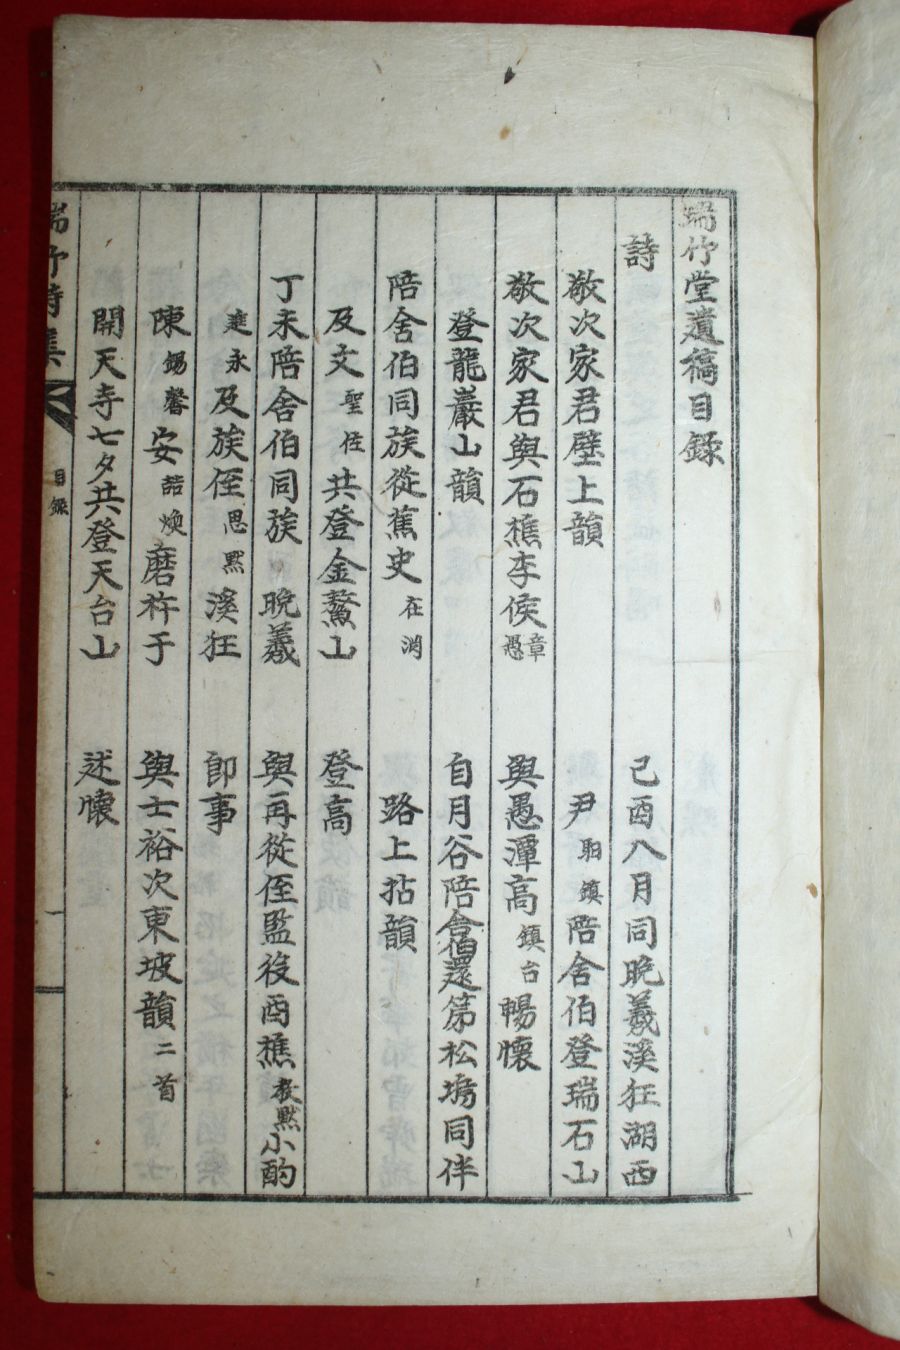 瑞竹堂遺稿目錄
詩
己酉八月同晩羲溪狂湖西
敬次家君壁上韻
尹 鎭 陪舍伯登瑞石山
敬次家君與石樵李侯 章愚
與愚潭高 鎭台 暢懷
登龍巖山韻
自月谷陪舍伯還第松塢同伴
陪舍伯同族從蕉史 在
路上拈韻
及文 聖佐 共登金鰲山
登高
丁未陪舍伯同族 晩羲
與再從侄監役酉樵 教默 小酌
永 及族侄 思默 溪狂
卽事
陳 錫馨 安 喆煥 磨杵于
與士裕次東坡韻 二首
開天寺七夕共登天台山
述懷
瑞竹詩集
目錄
一